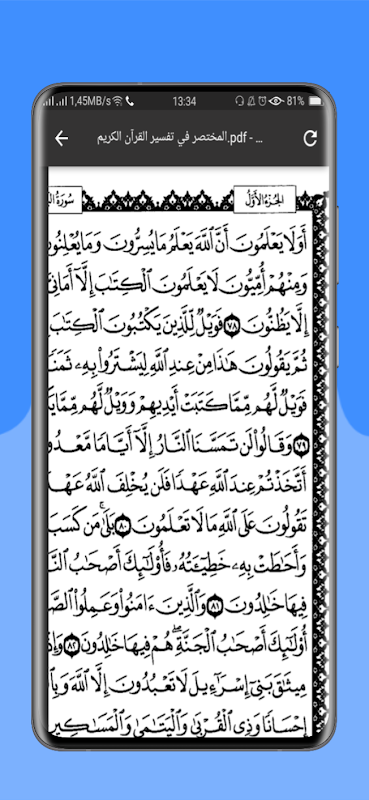 1,45MB/s 13:34 81%
المختصر في تفسير القرآن الكريم.pdf - ...
الجزء الأول سورة
أَوَلَا يَعْلَمُونَ أَنَّ ٱللَّهَ يَعْلَمُ مَا يُسِرُّونَ وَمَا يُعْلِنُونَ
وَمِنْهُمْ أُمِّيُّونَ لَا يَعْلَمُونَ ٱلْكِتَٰبَ إِلَّآ أَمَانِيَّ
إِلَّا يَظُنُّونَ ٧٨ فَوَيْلٌ لِّلَّذِينَ يَكْتُبُونَ ٱلْكِتَٰبَ
ثُمَّ يَقُولُونَ هَٰذَا مِنْ عِندِ ٱللَّهِ لِيَشْتَرُوا۟ بِهِۦ ثَمَنًا
فَوَيْلٌ لَّهُم مِّمَّا كَتَبَتْ أَيْدِيهِمْ وَوَيْلٌ لَّهُم مِّمَّا
٧٩ وَقَالُوا۟ لَن تَمَسَّنَا ٱلنَّارُ إِلَّآ أَيَّامًا مَّعْدُو
أَتَّخَذْتُمْ عِندَ ٱللَّهِ عَهْدًا فَلَن يُخْلِفَ ٱللَّهُ عَهْدَ
تَقُولُونَ عَلَى ٱللَّهِ مَا لَا تَعْلَمُونَ ٨٠ بَلَىٰ مَن كَسَبَ
وَأَحَٰطَتْ بِهِۦ خَطِيٓـَٔتُهُۥ فَأُو۟لَٰٓئِكَ أَصْحَٰبُ
فِيهَا خَٰلِدُونَ ٨١ وَٱلَّذِينَ ءَامَنُوا۟ وَعَمِلُوا۟
أُو۟لَٰٓئِكَ أَصْحَٰبُ ٱلْجَنَّةِ هُمْ فِيهَا خَٰلِدُونَ ٨٢ وَإِذْ
مِيثَٰقَ بَنِىٓ إِسْرَٰٓءِيلَ لَا تَعْبُدُونَ إِلَّا ٱللَّهَ
إِحْسَانًا وَذِى ٱلْقُرْبَىٰ وَٱلْيَتَٰمَىٰ وَٱلْمَسَٰكِينِ